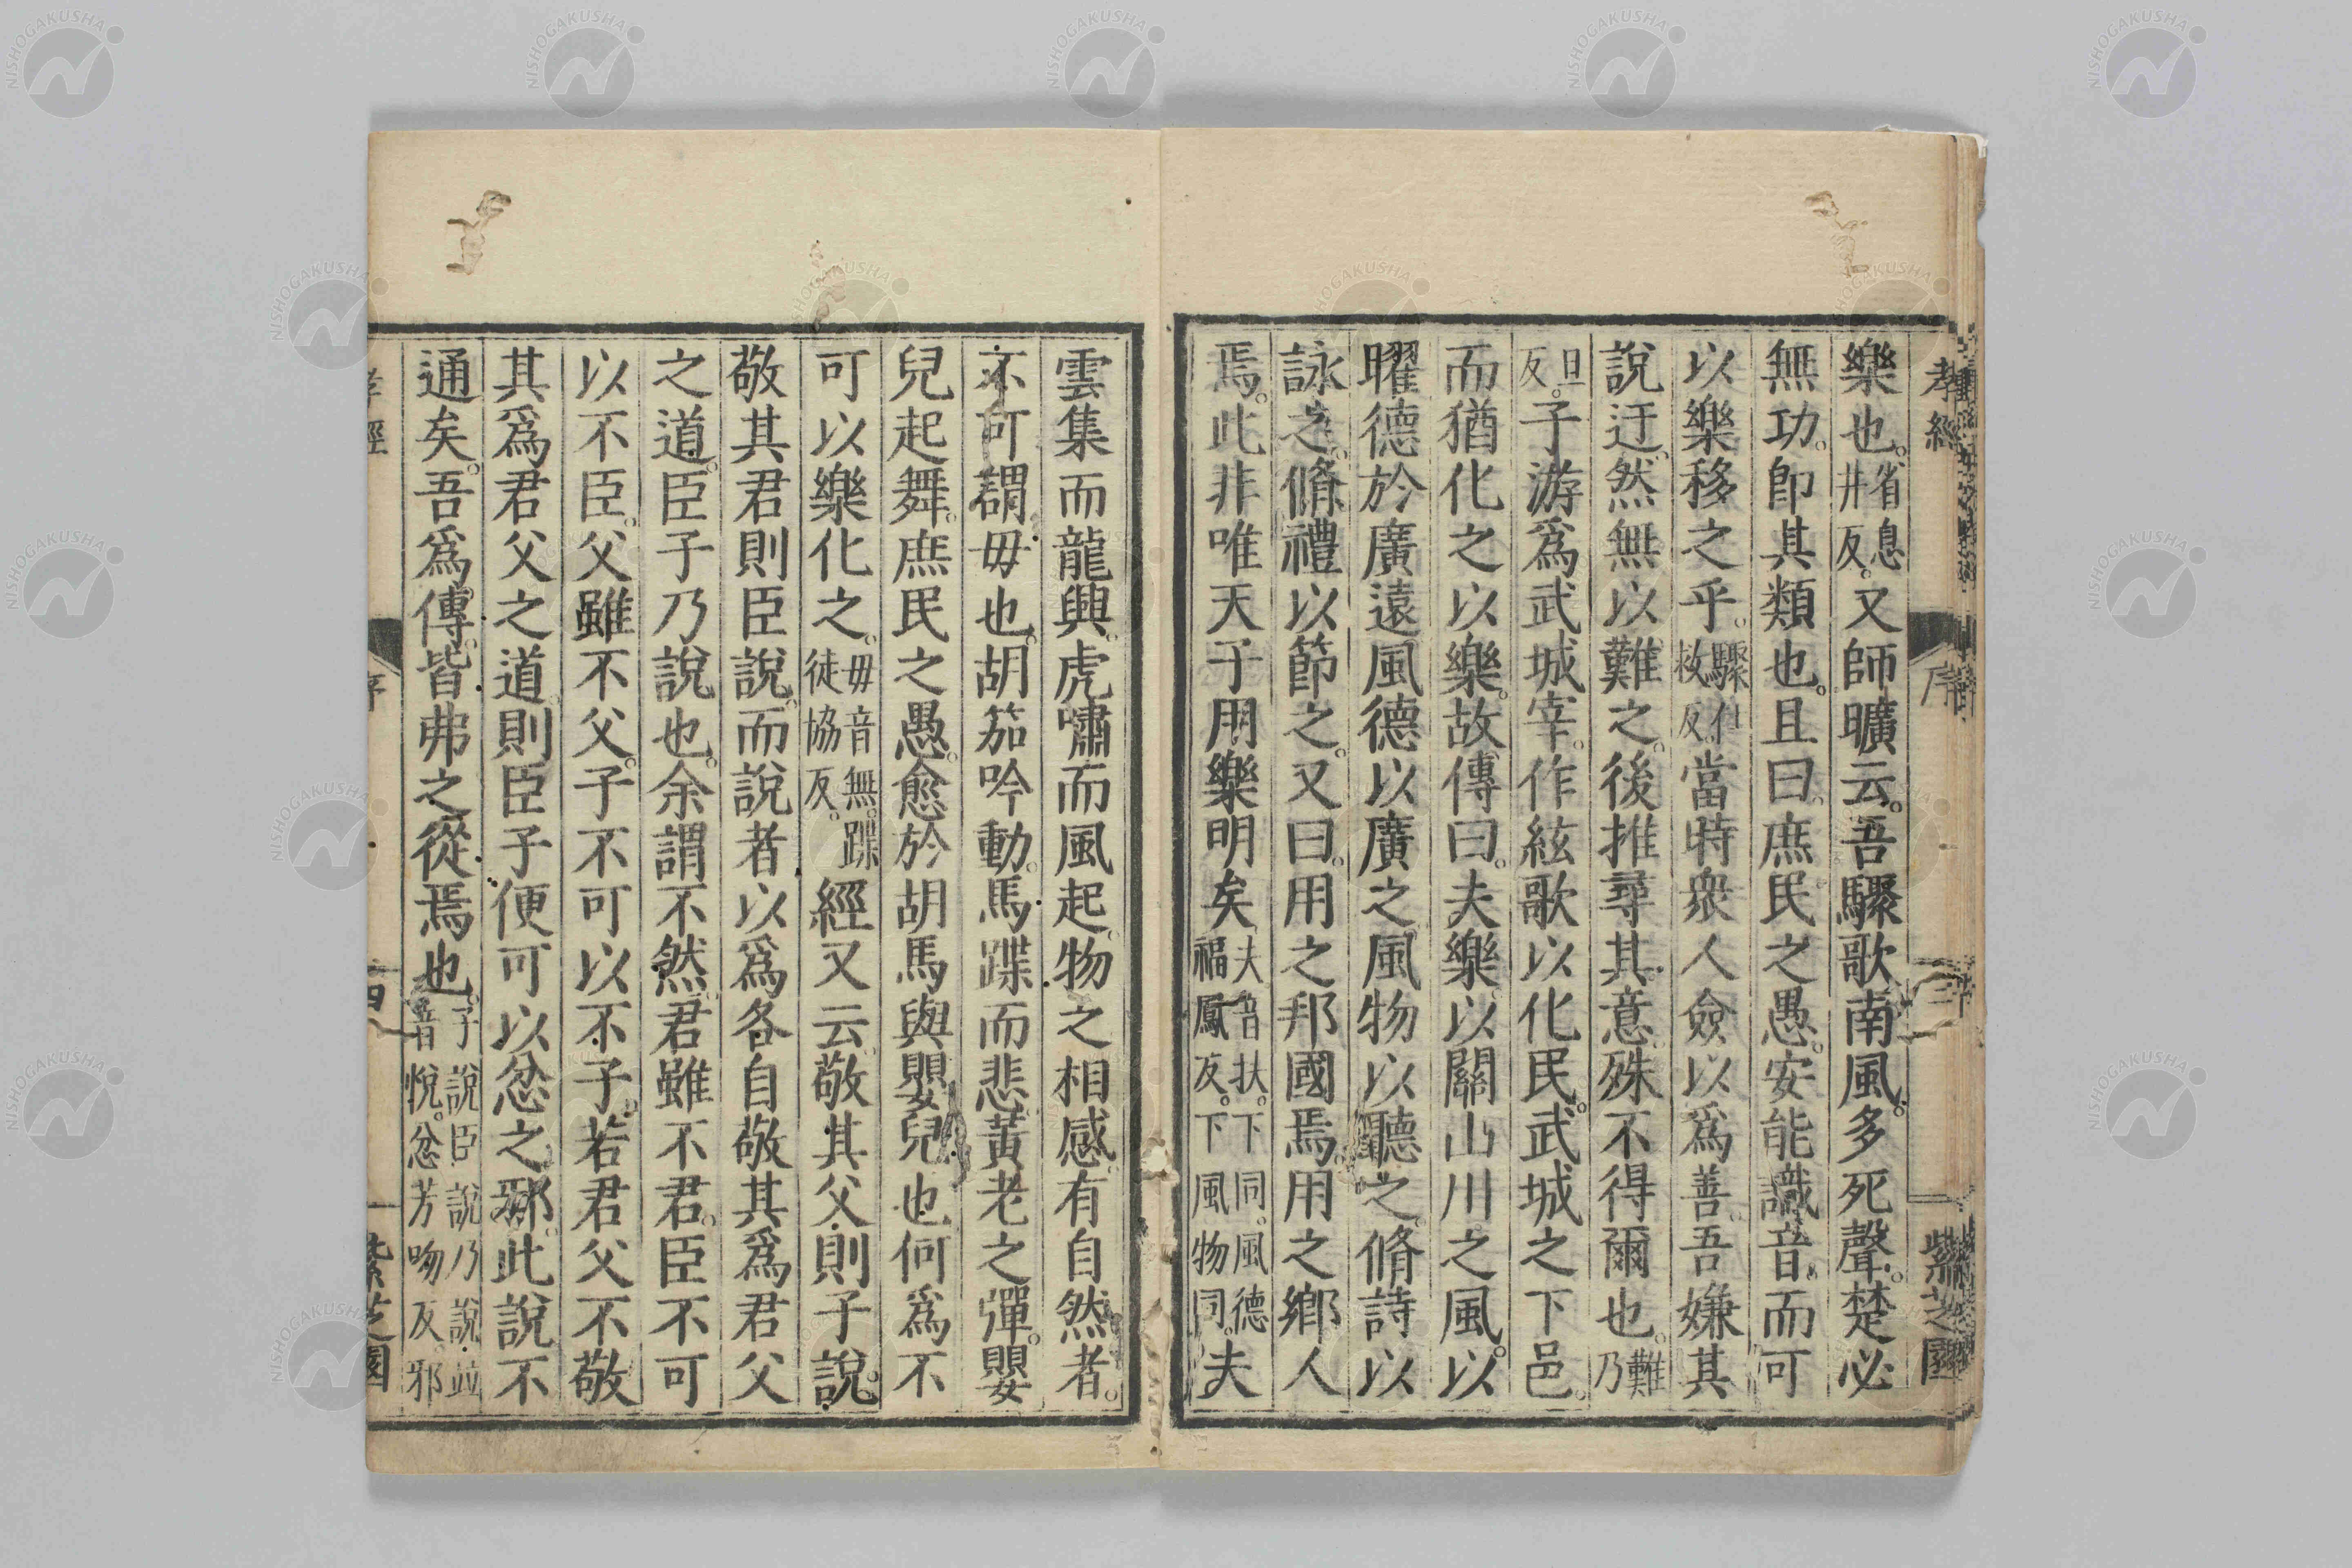 孝經
序
三
紫芝園
樂也。省息井反。又師曠云。吾驟歌南風。多死聲。楚必
無功。卽其類也。且曰。庶民之愚。安能識音。而可
以樂移之乎。驟仕救反。當時衆人僉以爲善。吾嫌其
說迂。然無以難之。後推尋其意。殊不得爾也。難乃
旦反。子游爲武城宰。作絃歌以化民。武城之下邑。
而猶化之以樂。故傳曰。夫樂以關山川之風。以
曜德於廣遠。風德以廣之。風物以聽之。脩詩以
詠之。脩禮以節之。又曰。用之邦國焉。用之鄉人
焉。此非唯天子用樂明矣。夫音扶。下同。風德福鳳反。下風物同。夫
雲集而龍興。虎嘯而風起。物之相感。有自然者。
不可謂毋也。胡笳吟動。馬蹀而悲。黃老之彈。嬰
兒起舞。庶民之愚。愈於胡馬與嬰兒也。何爲不
可以樂化之。毋音無。蹀徒協反。經又云。敬其父則子說。
敬其君則臣說。而說者以爲各自敬其爲君父
之道。臣子乃說也。余謂不然。君雖不君。臣不可
以不臣。父雖不父。子不可以不子。若君父不敬
其爲君父之道。則臣子便可以忿之邪。此說不
通矣。吾爲傳。皆弗之從焉也。子說臣說乃說。竝音悅。忿芳吻反。邪
孝經
序
四
紫芝園
NISHOGAKUSHA